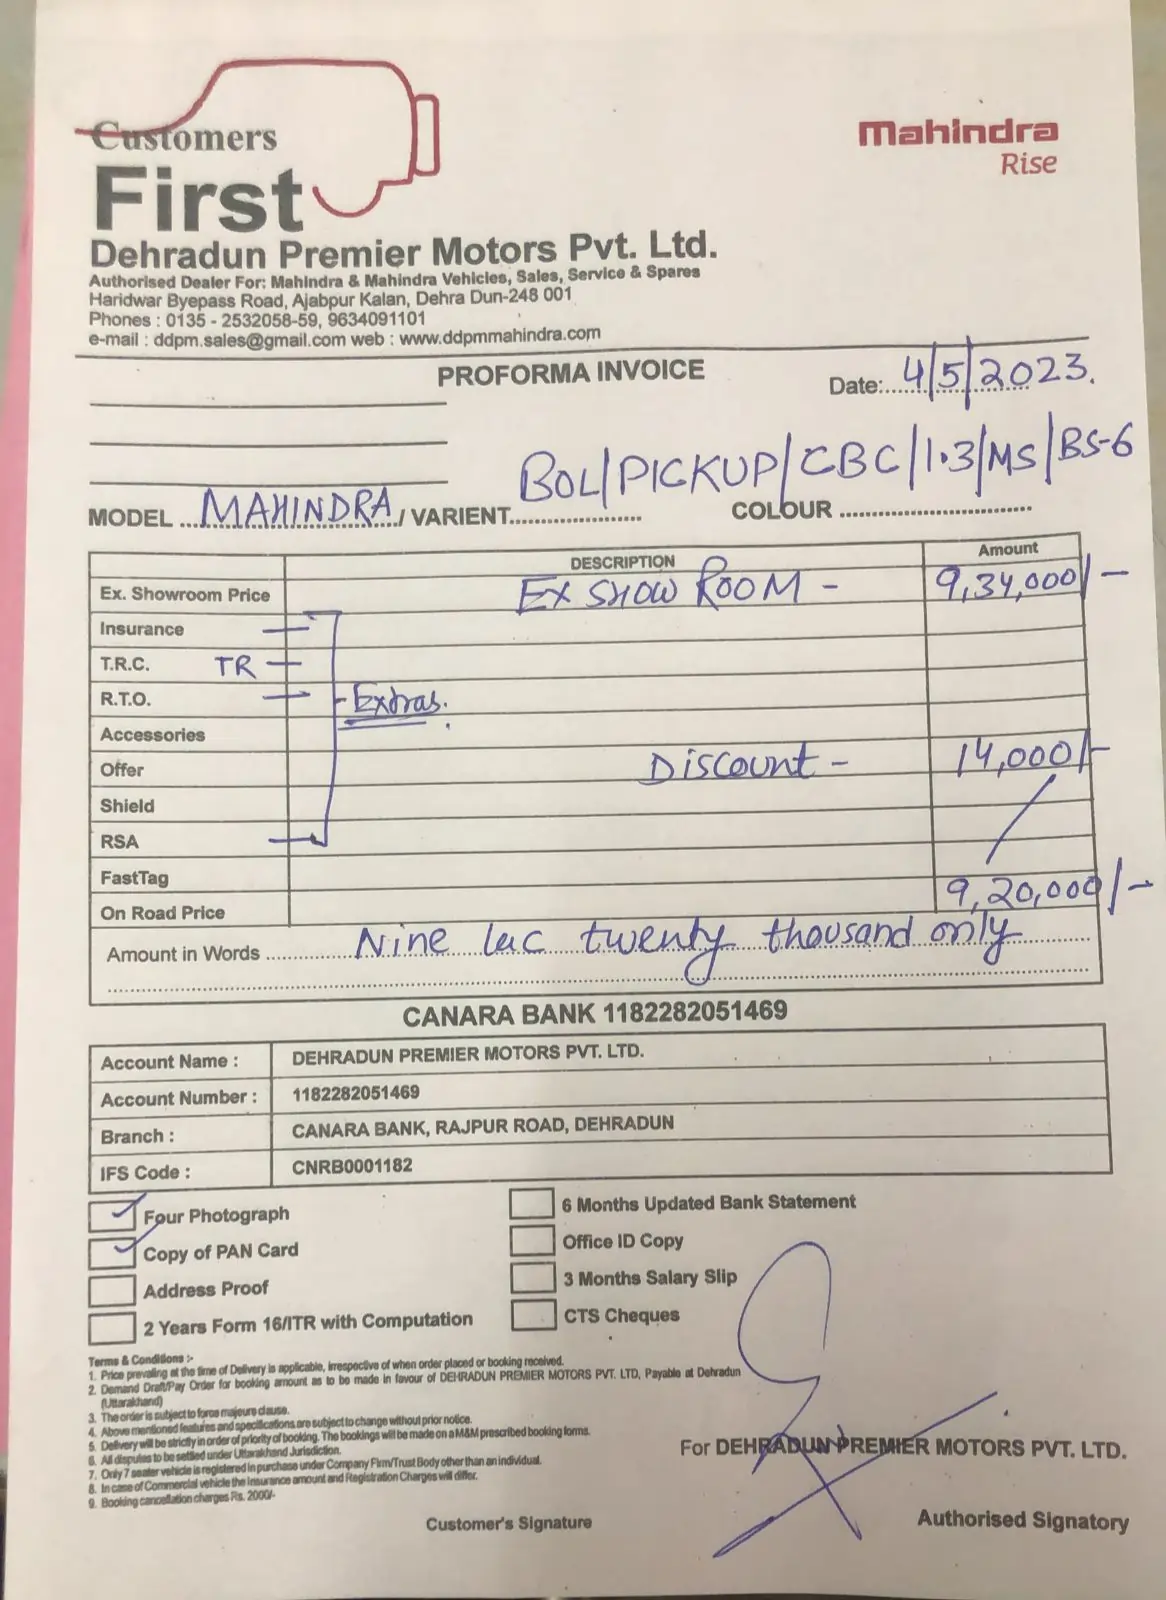 Customers
First
Mahindra
Rise
Dehradun Premier Motors Pvt. Ltd.
Authorised Dealer For: Mahindra & Mahindra Vehicles, Sales, Service & Spares
Haridwar Byepass Road, Ajabpur Kalan, Dehra Dun-248 001
Phones : 0135 - 2532058-59, 9634091101
e-mail : ddpm.sales@gmail.com web : www.ddpmmahindra.com
PROFORMA INVOICE
Date:..4/5/2023.
BOL/PICKUP/CBC/1.3/MS/BS-6
MODEL ...MAHINDRA../ VARIENT.................... COLOUR .............................
DESCRIPTION Amount
Ex. Showroom Price EX SHOW ROOM - 9,34,000/-
Insurance
T.R.C. TR
R.T.O. Extras.
Accessories
Offer Discount - 14,000/-
Shield
RSA
FastTag
On Road Price 9,20,000/-
Amount in Words ....Nine lac twenty thousand only
CANARA BANK 1182282051469
Account Name : DEHRADUN PREMIER MOTORS PVT. LTD.
Account Number : 1182282051469
Branch : CANARA BANK, RAJPUR ROAD, DEHRADUN
IFS Code : CNRB0001182
Four Photograph 6 Months Updated Bank Statement
Copy of PAN Card Office ID Copy
Address Proof 3 Months Salary Slip
2 Years Form 16/ITR with Computation CTS Cheques
Terms & Conditions :-
1. Price prevailing at the time of Delivery is applicable, irrespective of when order placed or booking received.
2. Demand Draft/Pay Order for booking amount as to be made in favour of DEHRADUN PREMIER MOTORS PVT. LTD, Payable at Dehradun
(Uttarakhand)
3. The order is subject to force majeure clause.
4. Above mentioned features and specifications are subject to change without prior notice.
5. Delivery will be strictly in order of priority of booking. The bookings will be made on a M&M prescribed booking forms.
6. All disputes to be settled under Uttarakhand Jurisdiction.
7. Only 7 seater vehicle is registered in purchase under Company Firm/Trust Body other than an individual.
8. In case of Commercial vehicle the Insurance amount and Registration Charges will differ.
9. Booking cancellation charges Rs. 2000/-
For DEHRADUN PREMIER MOTORS PVT. LTD.
Customer's Signature
Authorised Signatory